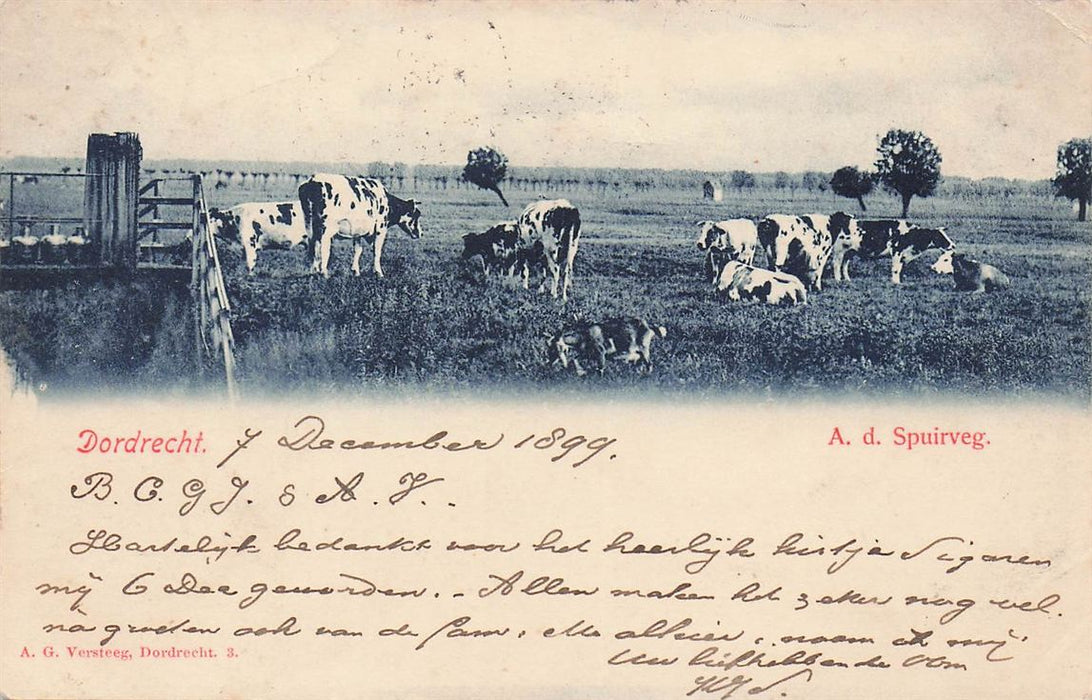 Dordrecht. 7 December 1899.
A. d. Spuirveg.
B. C. G J. & A. V..
Hartelijk bedankt voor het heerlijk kistje Sigaren
mij 6 Dec geworden. - Allen maken het zeker nog wel.
na groeten ook van de fam: alhier. noem ik mij
A. G. Versteeg, Dordrecht. 3.
Uw liefhebbende Oom